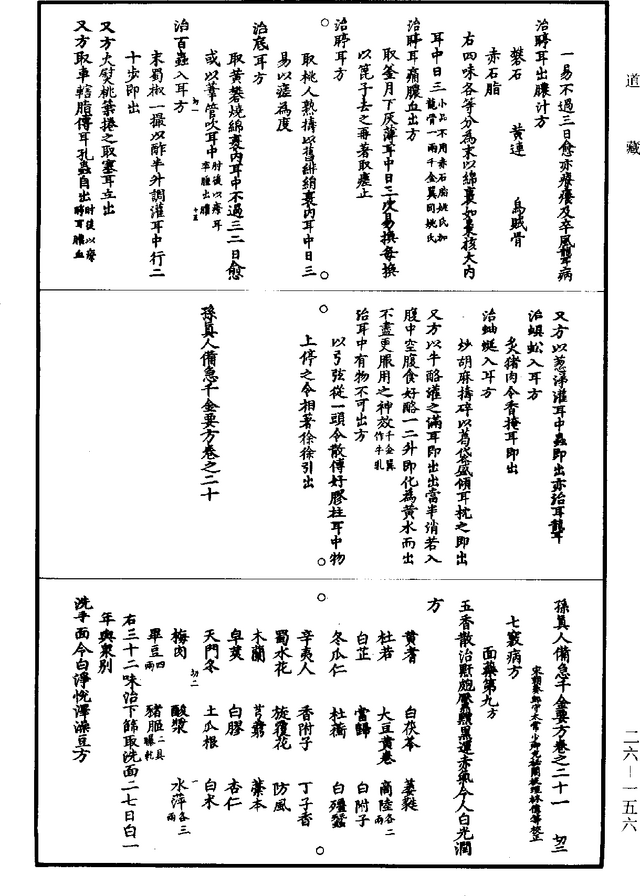 道藏
一易不過三日愈亦療癢及卒風聾病
治聤耳出膿汁方
礬石 黃連 烏賊骨
赤石脂
右四味各等分為末以綿裹如棗核大內
耳中日三小品不用赤石脂姚氏加龍骨一兩千金翼同姚氏
治聤耳痛膿血出方
取釜月下灰薄耳中日三次易換每換
以篦子去之再著取瘥止
治聤耳方
取桃人熟擣以舊緋絹裹內耳中日三
易以瘥為度
治底耳方
取黃礬燒綿裹內耳中不過三二日愈
或以葦管吹耳中肘後以療耳卒腫出膿
治百蟲入耳方
末蜀椒一撮以酢半升調灌耳中行二
十步即出
又方火熨桃葉捲之取塞耳立出
又方取車轄脂傅耳孔蟲自出肘後以療聤耳膿血
又方以蔥涕灌耳中蟲即出亦治耳聾
治蜈蚣入耳方
炙豬肉令香掩耳即出
治蚰蜒入耳方
炒胡麻擣碎以葛袋盛傾耳枕之即出
又方以牛酪灌之滿耳即出出當半消若入
腹中空腹食好酪一二升即化為黃水而出
不盡更服用之神效千金翼作牛乳
治耳中有物不可出方
以弓弦從一頭令散傅好膠柱耳中物
上停之令相著徐徐引出
孫真人備急千金要方卷之二十
孫真人備急千金要方卷之二十一 切三
七竅病方
面藥第九方
五香散治䵟皰黶䵳黑運赤氣令人白光潤
方
黃耆 白茯苓 萎蕤
杜若 大豆黃卷 商陸各二兩
白芷 當歸 白附子
冬瓜仁 杜衡 白殭蠶
辛夷人 香附子 丁子香
蜀水花 旋覆花 防風
木蘭 芎藭 藁本
皁莢 白膠 杏仁
天門冬 土瓜根 白朮
梅肉 酸漿 水萍各三兩
畢豆四兩 豬胰二具曝乾
右三十二味治下篩取洗面二七日白一
年與眾別
洗手面令白淨悅澤澡豆方
二六—一五六